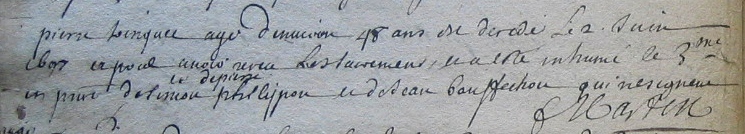 pierre poinquet agé denviron 48 ans est decedé Le 2. Juin
1697 apres avoir receu Les sacremens, et a esté inhumé le 3me
et depierre
en pnce de simon phelipon et de Jean bouffechou qui ne signent
Martin